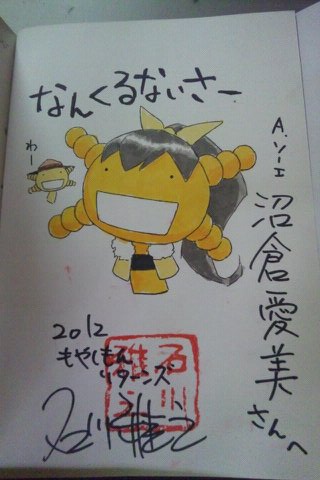 なんくるないさー
わー
A.ソーエ
沼倉愛美さんへ
2012
もやしもん
リターンズ
石川雅之
石川雅之